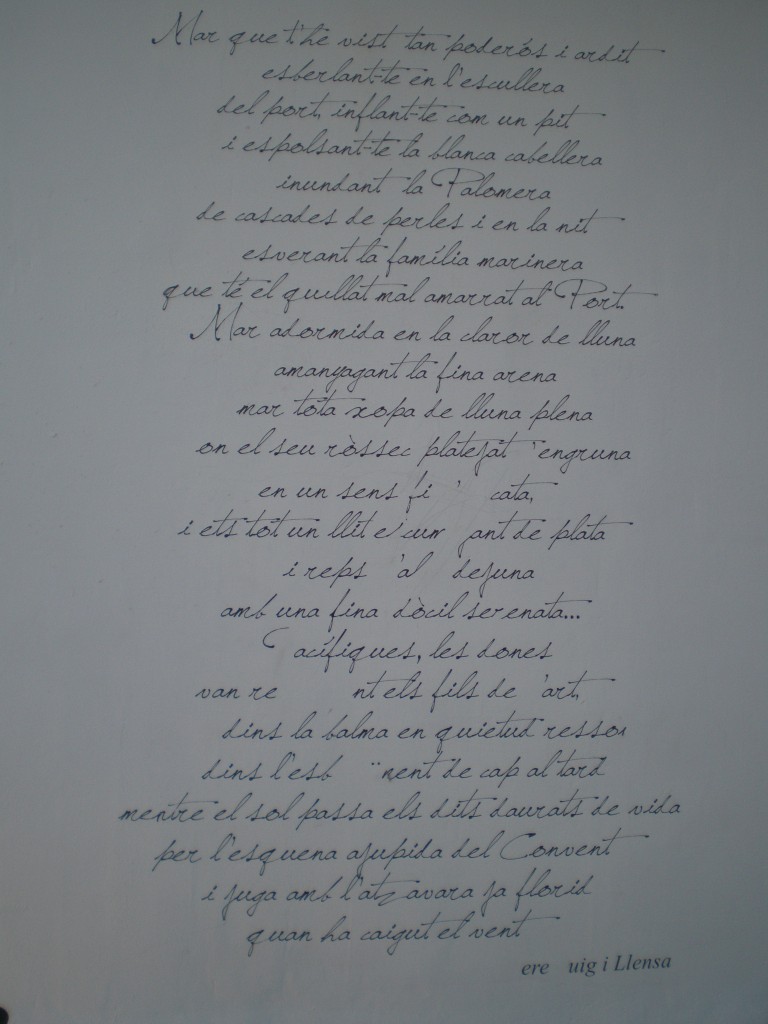 Mar que t'he vist tan poderós i ardit
esberlant-te en l'escullera
del port, inflant-te com un pit
i espolsant-te la blanca cabellera
inundant la Palomera
de cascades de perles i en la nit
esverant la família marinera
que té el quillat mal amarrat al Port.
Mar adormida en la claror de lluna
amanyagant la fina arena
mar tota xopa de lluna plena
on el seu ròssec platejat engruna
en un sens fi
i ets tot un llit de plata
i reps
amb una fina dòcil serenata...
les dones
van els fils de
dins la balma en quietud
dins l'esb nent de cap al tard
mentre el sol passa els dits daurats de vida
per l'esquena ajupida del Convent
i juga amb l'atzavara ja florid
quan ha caigut el vent
ere uig i Llensa